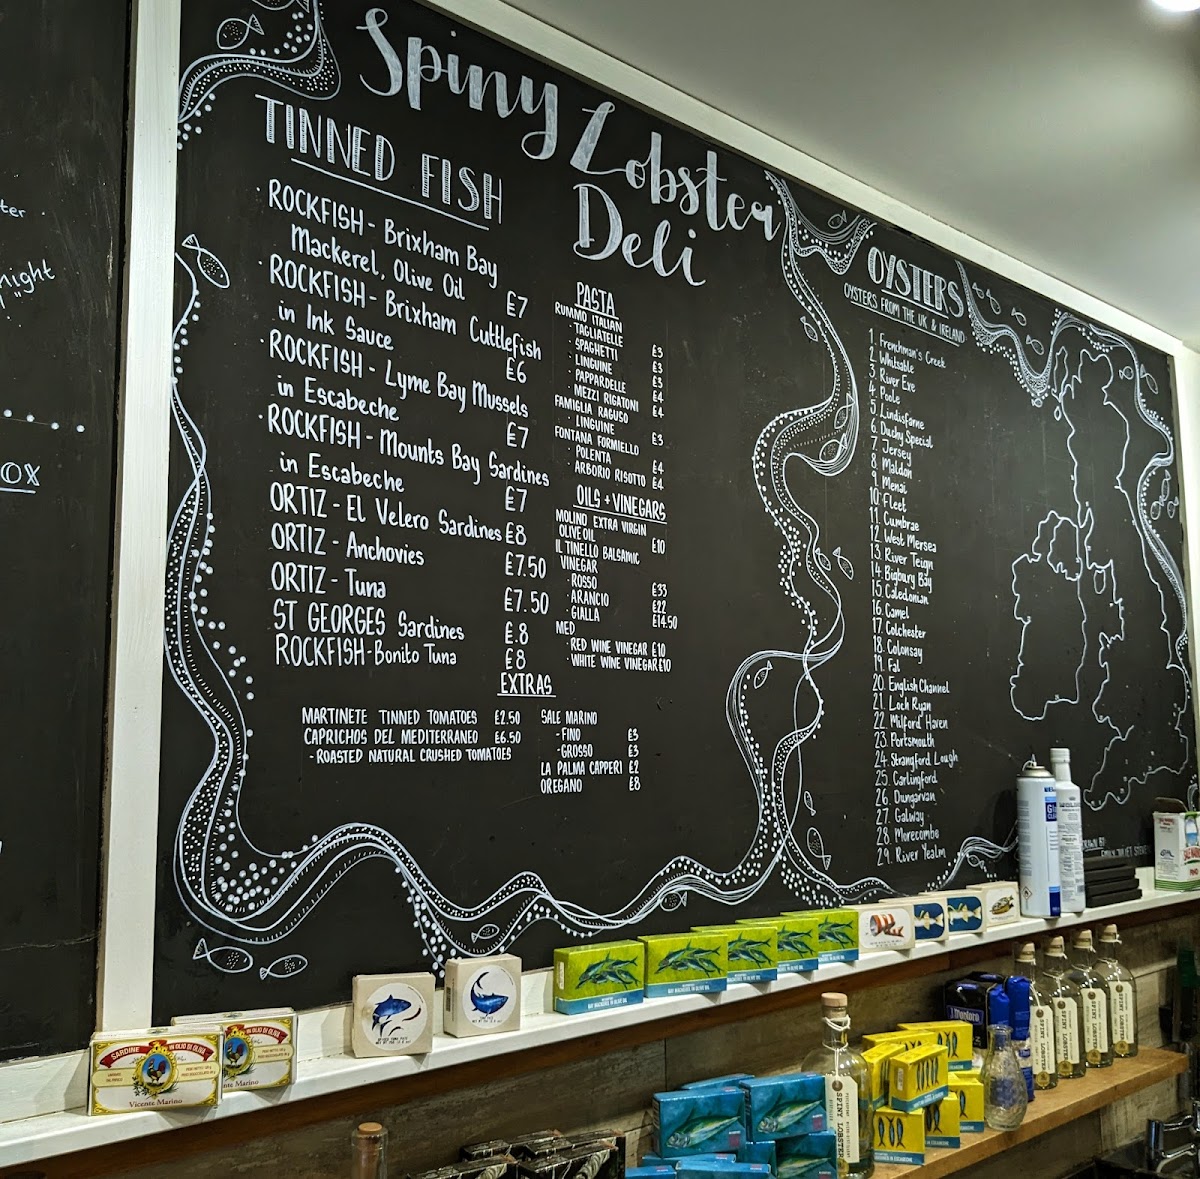 Spiny Lobster
Deli
TINNED FISH
· ROCKFISH - Brixham Bay
Mackerel, Olive Oil £7
· ROCKFISH - Brixham Cuttlefish
in Ink Sauce £6
· ROCKFISH - Lyme Bay Mussels
in Escabeche £7
· ROCKFISH - Mounts Bay Sardines
in Escabeche £7
ORTIZ - El Velero Sardines £8
ORTIZ - Anchovies £7.50
ORTIZ - Tuna £7.50
ST GEORGES Sardines £.8
ROCKFISH - Bonito Tuna £8
PASTA
RUMMO ITALIAN
· TAGLIATELLE £3
· SPAGHETTI £3
· LINGUINE £3
· PAPPARDELLE £4
· MEZZI RIGATONI £4
FAMIGLIA RAGUSO
LINGUINE £3
FONTANA FORMIELLO
· POLENTA £4
· ARBORIO RISOTTO £4
OILS + VINEGARS
MOLINO EXTRA VIRGIN
OLIVE OIL £10
IL TINELLO BALSAMIC
VINEGAR
· ROSSO £33
· ARANCIO £22
· GIALLA £14.50
MED
· RED WINE VINEGAR £10
· WHITE WINE VINEGAR £10
EXTRAS
MARTINETE TINNED TOMATOES £2.50
CAPRICHOS DEL MEDITERRANEO £6.50
- ROASTED NATURAL CRUSHED TOMATOES
SALE MARINO
- FINO £3
- GROSSO £3
LA PALMA CAPPERI £2
OREGANO £8
OYSTERS
OYSTERS FROM THE UK & IRELAND
1. Frenchman's Creek
2. Whitsable
3. River Exe
4. Poole
5. Lindisfarne
6. Duchy Special
7. Jersey
8. Maldon
9. Menai
10. Fleet
11. Cumbrae
12. West Mersea
13. River Teign
14. Bigbury Bay
15. Caledonian
16. Camel
17. Colchester
18. Colonsay
19. Fal
20. English Channel
21. Loch Ryan
22. Milford Haven
23. Portsmouth
24. Strangford Lough
25. Carlingford
26. Dungarvan
27. Galway
28. Morecombe
29. River Yealm
night
OX
SARDINE IN OLIO DI OLIVA
Vicente Marino
IN OLIO DI OLIVA
Vicente Marino
SPINY LOBSTER
SPINY LOBSTER